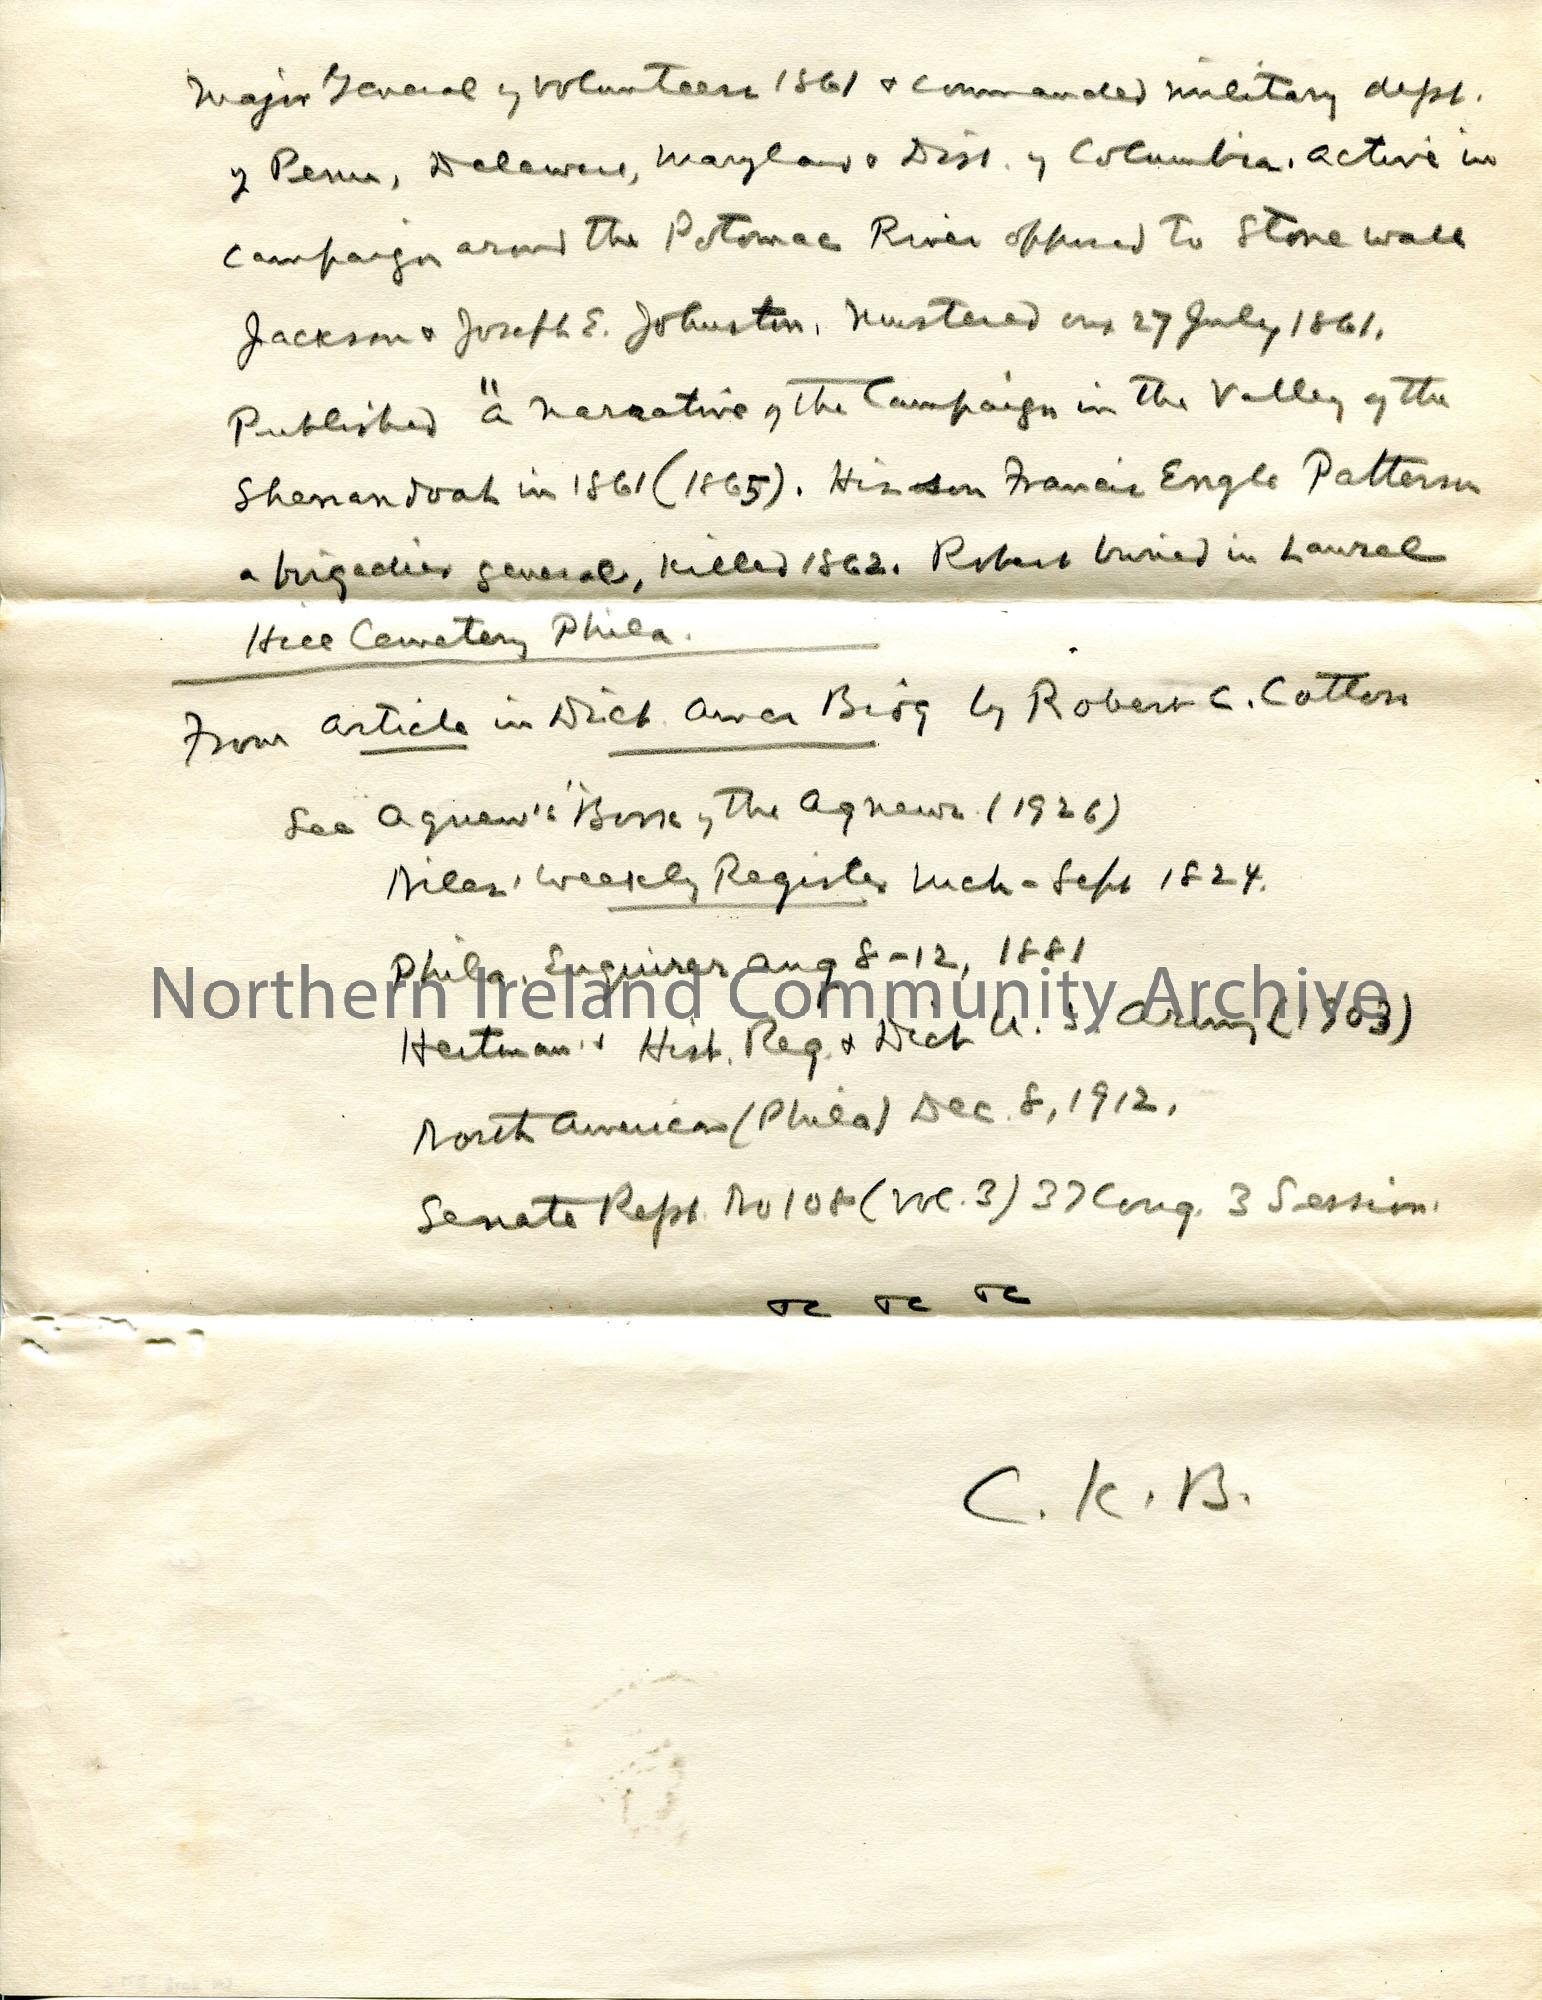 Major General of Volunteers 1861 & commanded military dept.
of Penn, Delaware, Maryland & Dist. of Columbia. Active in
campaign around the Potomac River opposed to Stonewall
Jackson & Joseph E. Johnston. Mustered out 27 July 1861.
Published "A Narrative of the Campaign in the Valley of the
Shenandoah in 1861 (1865). His son Francis Engle Patterson
a brigadier general, killed 1862. Robert buried in Laurel
Hill Cemetery Phila.
From article in Dict. Amer Biog by Robert C. Cotton
See Agnew's "Book of the Agnews (1926)
Niles' Weekly Register Mch - Sept 1824.
Phila. Enquirer Aug 8-12, 1881
Northern Ireland Community Archive
Heitman's Hist. Reg. & Dict U.S. Army (1903)
North American (Phila) Dec. 8, 1912.
Senate Rept. No 108 (vol. 3) 37 Cong. 3 Session.
&c &c &c
C. K. B.